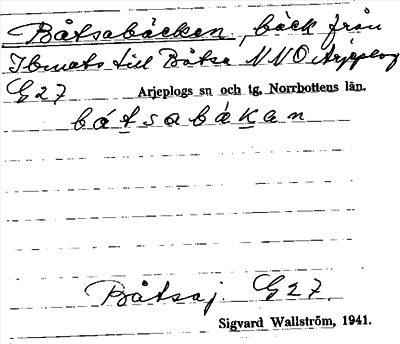 Båtsabäcken, bäck från
Ibmats till Båtsa NNO Arjeplog
G27 Arjeplogs sn och tg, Norrbottens län.
bátsabákan
Båtsaj. G27.
Sigvard Wallström, 1941.